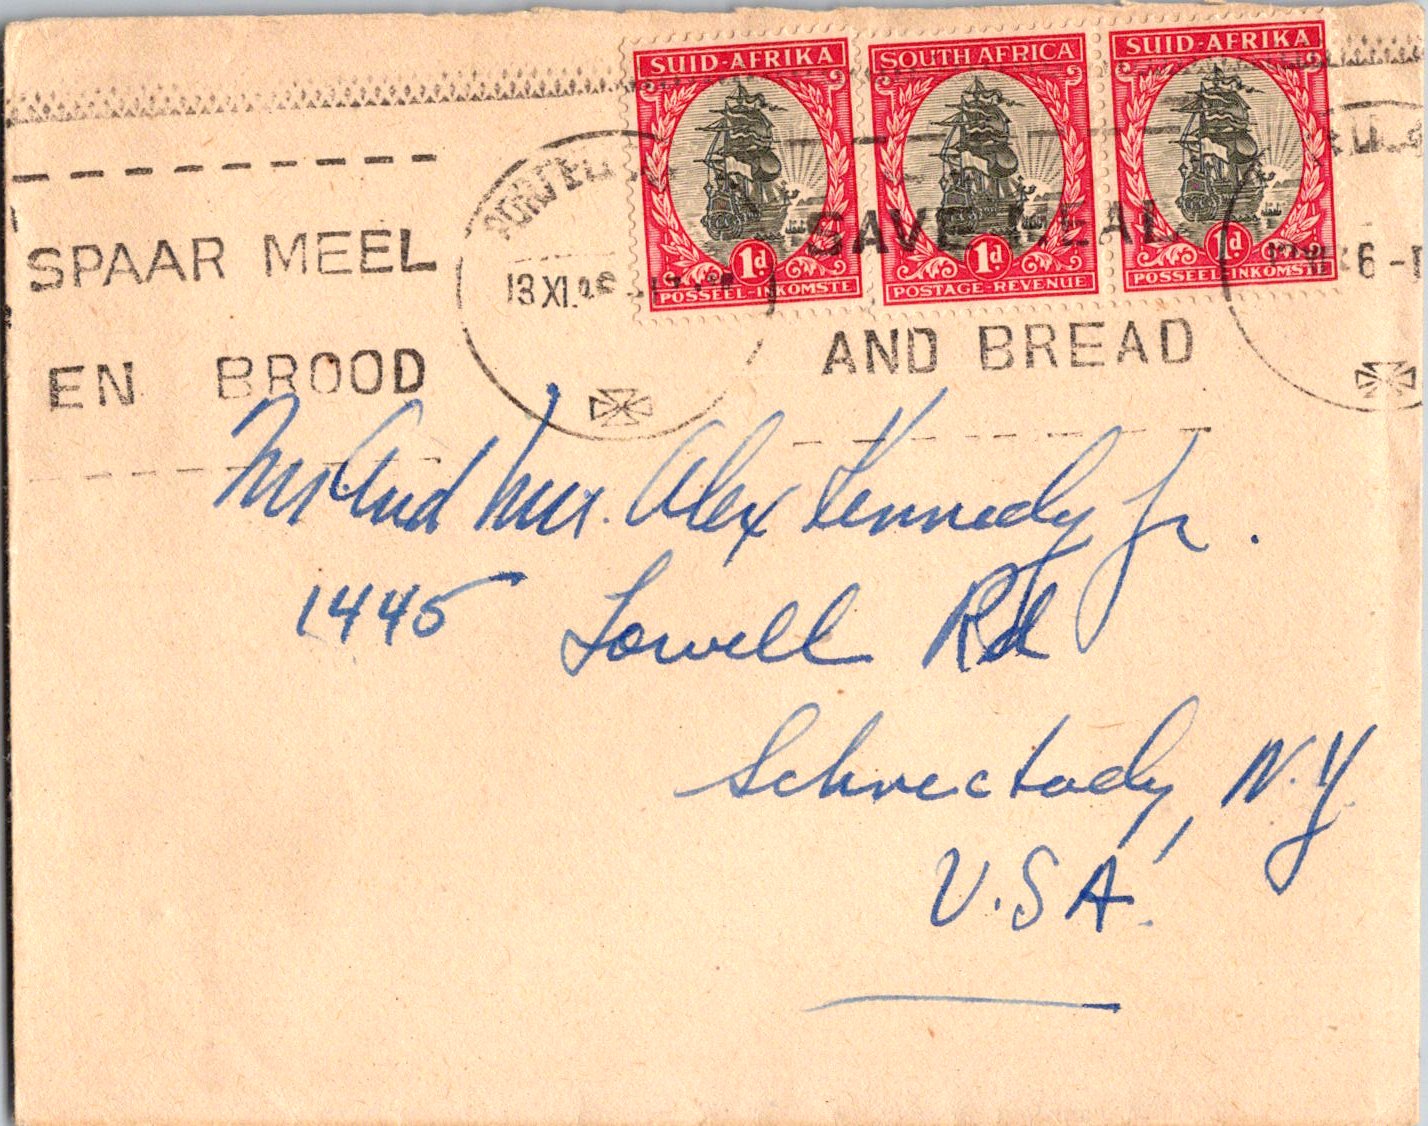 SUID-AFRIKA SOUTH AFRICA SUID-AFRIKA
1d 1d 1d
POSSEEL-INKOMSTE POSTAGE-REVENUE POSSEEL-INKOMSTE
SPAAR MEEL
EN BROOD
13 XI
SAVE MEAL
AND BREAD
6
Mr and Mrs. Alex Kennedy Jr.
1445 Lowell Rd
Schnectady, N.Y.
U.S.A.